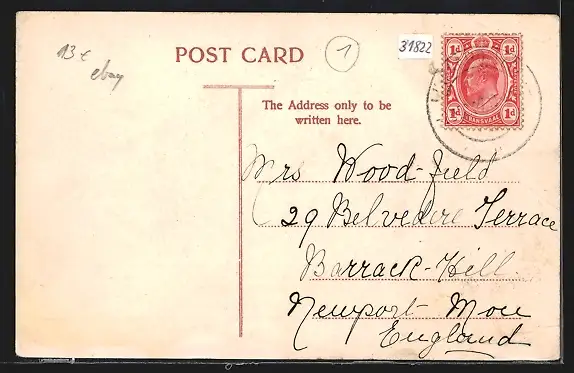 13 €
ebay
POST CARD
1
31822
1d 1d
TRANSVAAL
1d 1d
The Address only to be
written here.
Mrs Wood-field
29 Belvedere Terrace
Barrack-Hill.
Newport-Mon
England